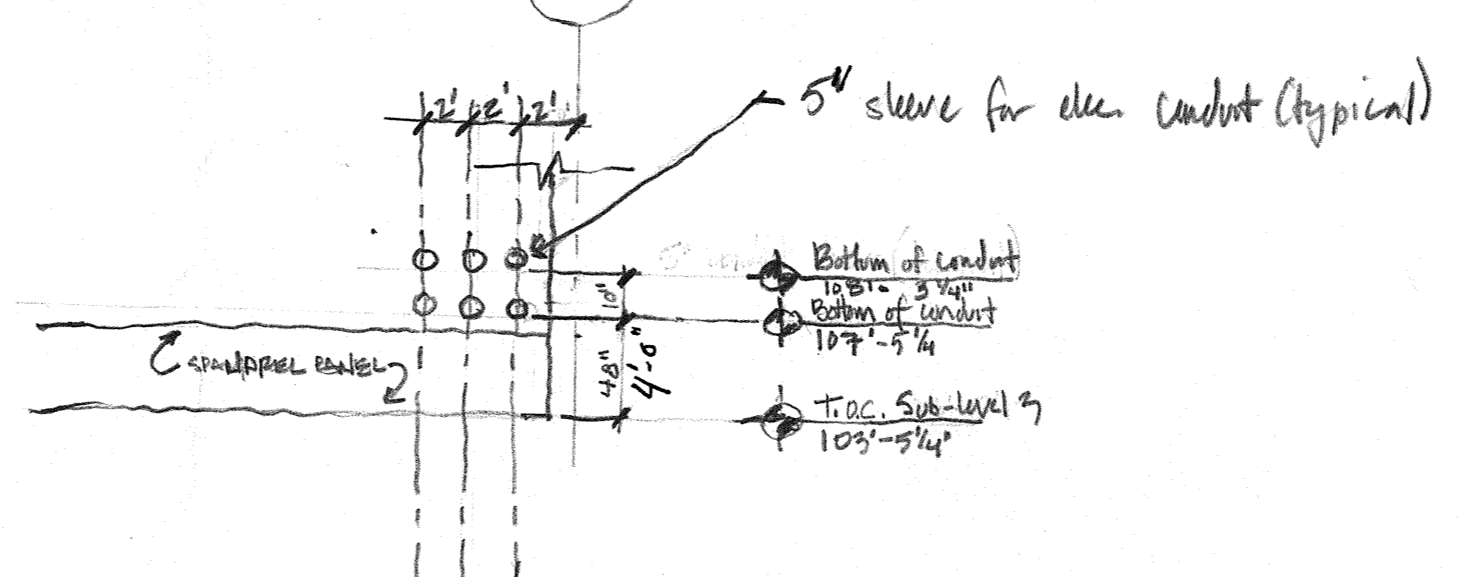 2' 2' 2'
5" sleeve for elec conduit (typical)
Bottom of conduit
108'- 3 1/4"
10"
Bottom of conduit
107'-5 1/4
SPANDREL PANEL
48"
4'-0"
T.O.C. Sub-level 3
103'-5 1/4"